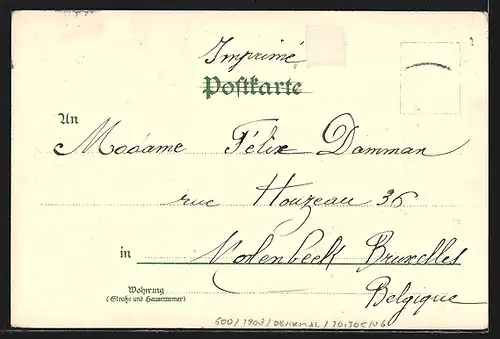 Imprimé
Postkarte
An
Madame Félix Damman
rue Houzeau 36
in Molenbeek Bruxelles
Wohnung
(Straße und Hausnummer)
Belgique